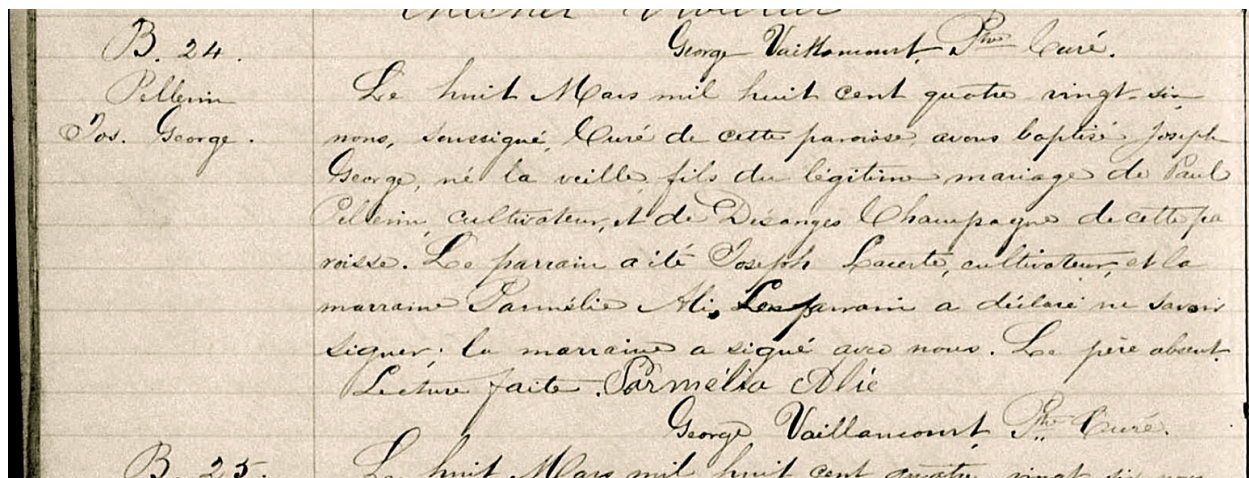 B. 24.
George Vaillancourt, Ptre Curé.
Pellerin
Jos. George.
Le huit Mars mil huit cent quatre vingt-six
nous, soussigné, Curé de cette paroisse, avons baptisé Joseph
George, né la veille, fils du légitime mariage de Paul
Pellerin, cultivateur, et de Désanges Champagne de cette pa
roisse. Le parrain a été Joseph Lacerte, cultivateur, et la
marraine Parmélie Ali. Le parrain a déclaré ne savoir
signer. la marraine a signé avec nous. Le père absent.
Lecture faite. Parmélia Alie
George Vaillancourt Ptre Curé.
B. 25.
Le huit Mars mil huit cent quatre vingt six nous